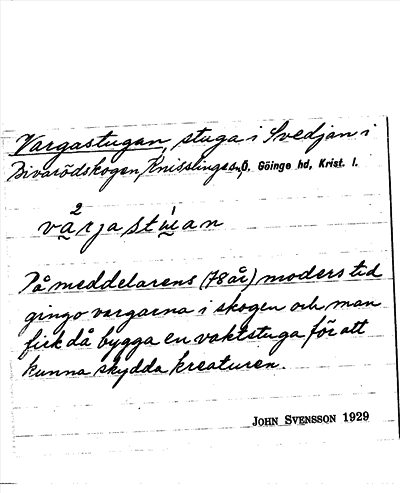 Vargastugan, stuga i Svedjan i
Divarödskogen, Knisslinge sn, Ö. Göinge hd, Krist. l.
På meddelarens (78 år) moders tid
gingo vargarna i skogen och man
fick då bygga en vaktstuga för att
kunna skydda kreaturen.
JOHN SVENSSON 1929